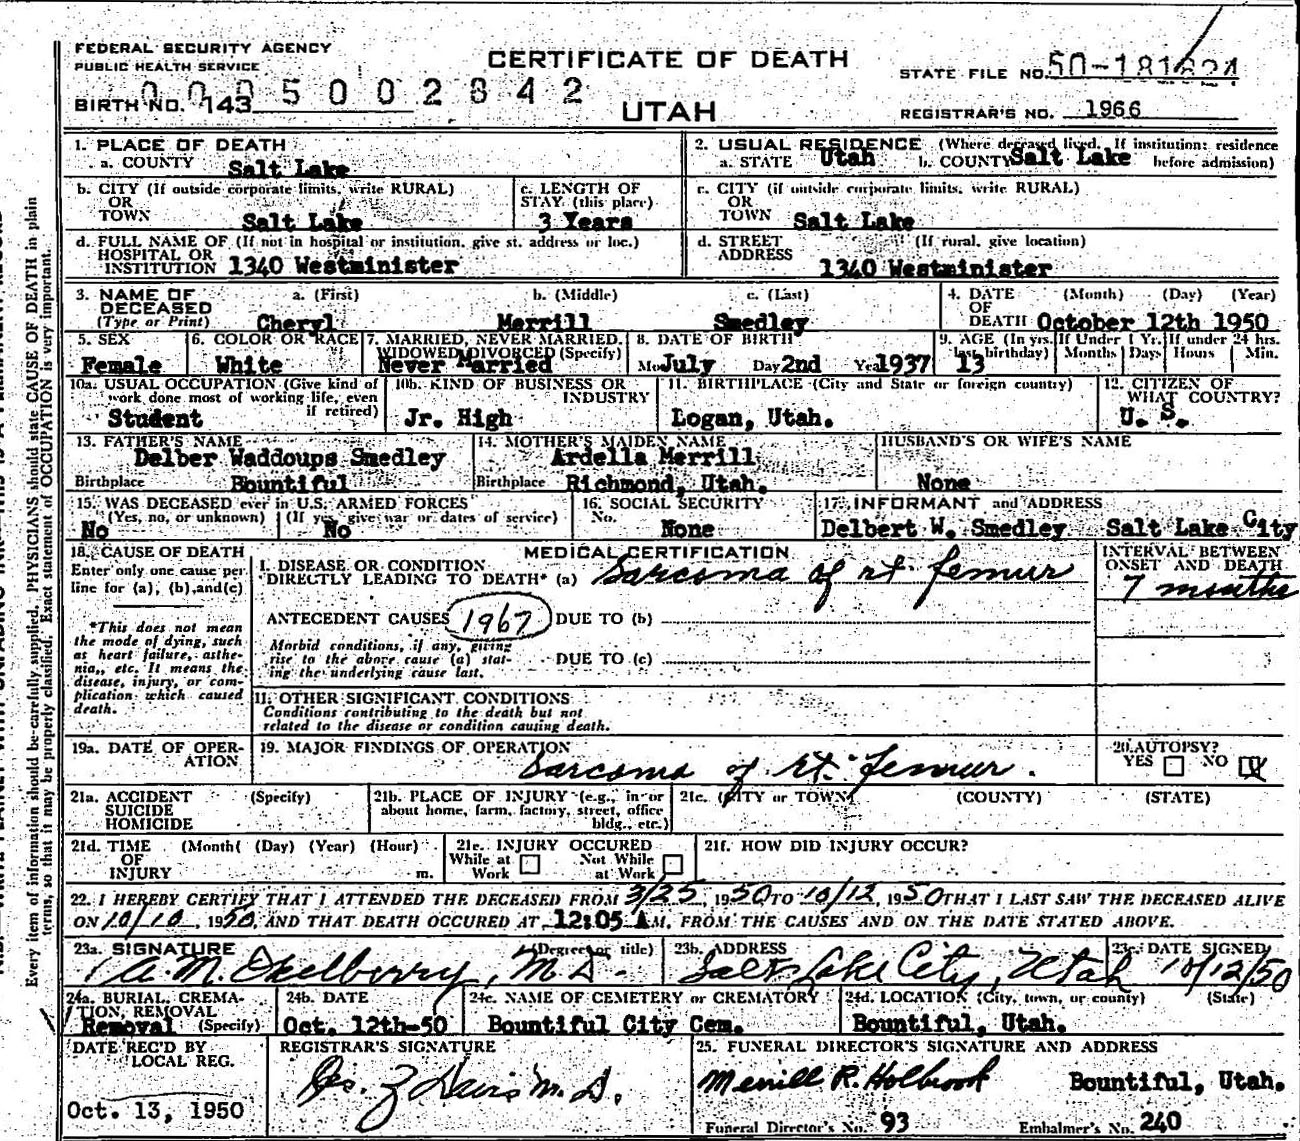 FEDERAL SECURITY AGENCY
PUBLIC HEALTH SERVICE
CERTIFICATE OF DEATH
UTAH
STATE FILE NO. 50-181824
BIRTH NO. 143 0005002842
REGISTRAR'S NO. 1966
1. PLACE OF DEATH
a. COUNTY Salt Lake
2. USUAL RESIDENCE (Where deceased lived. If institution: residence before admission)
a. STATE Utah b. COUNTY Salt Lake
b. CITY (If outside corporate limits, write RURAL)
OR TOWN Salt Lake
c. LENGTH OF STAY (this place) 3 Years
c. CITY (if outside corporate limits, write RURAL)
OR TOWN Salt Lake
d. FULL NAME OF (If not in hospital or institution, give st. address or loc.)
HOSPITAL OR INSTITUTION 1340 Westminister
d. STREET ADDRESS (If rural, give location)
1340 Westminister
3. NAME OF DECEASED (Type or Print)
a. (First) b. (Middle) c. (Last)
Cheryl Merrill Smedley
4. DATE OF DEATH (Month) (Day) (Year)
October 12th 1950
5. SEX Female
6. COLOR OR RACE White
7. MARRIED, NEVER MARRIED, WIDOWED DIVORCED (Specify) Never Married
8. DATE OF BIRTH Mo July Day 2nd Yea 1937
9. AGE (In yrs. last birthday) 13 If Under 1 Yr. Months Days If under 24 hrs. Hours Min.
10a. USUAL OCCUPATION (Give kind of work done most of working life, even if retired) Student
10b. KIND OF BUSINESS OR INDUSTRY Jr. High
11. BIRTHPLACE (City and State or foreign country) Logan, Utah.
12. CITIZEN OF WHAT COUNTRY? U. S.
13. FATHER'S NAME Delber Waddoups Smedley
Birthplace Bountiful
14. MOTHER'S MAIDEN NAME Ardella Merrill
Birthplace Richmond, Utah.
HUSBAND'S OR WIFE'S NAME None
15. WAS DECEASED ever in U.S. ARMED FORCES
(Yes, no, or unknown) No (If yes, give war or dates of service) No
16. SOCIAL SECURITY No. None
17. INFORMANT and ADDRESS
Delbert W. Smedley Salt Lake City
18. CAUSE OF DEATH
Enter only one cause per line for (a), (b), and (c)
*This does not mean the mode of dying, such as heart failure, asthenia, etc. It means the disease, injury, or complication which caused death.
MEDICAL CERTIFICATION
I. DISEASE OR CONDITION DIRECTLY LEADING TO DEATH* (a) Sarcoma of rt. femur
INTERVAL BETWEEN ONSET AND DEATH
7 months
ANTECEDENT CAUSES 1967 DUE TO (b)
Morbid conditions, if any, giving rise to the above cause (a) stating the underlying cause last.
DUE TO (c)
11. OTHER SIGNIFICANT CONDITIONS
Conditions contributing to the death but not related to the disease or condition causing death.
19a. DATE OF OPERATION
19. MAJOR FINDINGS OF OPERATION
Sarcoma of rt. femur.
20. AUTOPSY?
YES NO
21a. ACCIDENT SUICIDE HOMICIDE (Specify)
21b. PLACE OF INJURY (e.g., in or about home, farm, factory, street, office bldg., etc.)
21c. (CITY or TOWN) (COUNTY) (STATE)
21d. TIME OF INJURY (Month( (Day) (Year) (Hour) m.
21e. INJURY OCCURED
While at Work Not While at Work
21f. HOW DID INJURY OCCUR?
22. I HEREBY CERTIFY THAT I ATTENDED THE DECEASED FROM 3/25, 1950 TO 10/12, 1950 THAT I LAST SAW THE DECEASED ALIVE
ON 10/10, 1950, AND THAT DEATH OCCURED AT 12:05 AM. FROM THE CAUSES AND ON THE DATE STATED ABOVE.
23a. SIGNATURE (Degree or title) 23b. ADDRESS 23c. DATE SIGNED
A. M. Okelberry, M.D. Salt Lake City, Utah 10/12/50
24a. BURIAL, CREMATION, REMOVAL (Specify) Removal
24b. DATE Oct. 12th-50
24c. NAME OF CEMETERY or CREMATORY Bountiful City Cem.
24d. LOCATION (City, town, or county) (State) Bountiful, Utah.
DATE REC'D BY LOCAL REG.
Oct. 13, 1950
REGISTRAR'S SIGNATURE
Jos. Z Davis M.D.
25. FUNERAL DIRECTOR'S SIGNATURE AND ADDRESS
Merrill R. Holbrook Bountiful, Utah.
Funeral Director's No. 93 Embalmer's No. 240
Every item of information should be carefully supplied. PHYSICIANS should state CAUSE OF DEATH in plain
terms, so that it may be properly classified. Exact statement of OCCUPATION is very important.